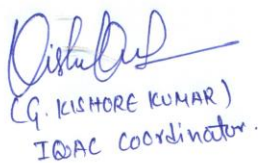 (G. KISHORE KUMAR)
IQAC Coordinator.